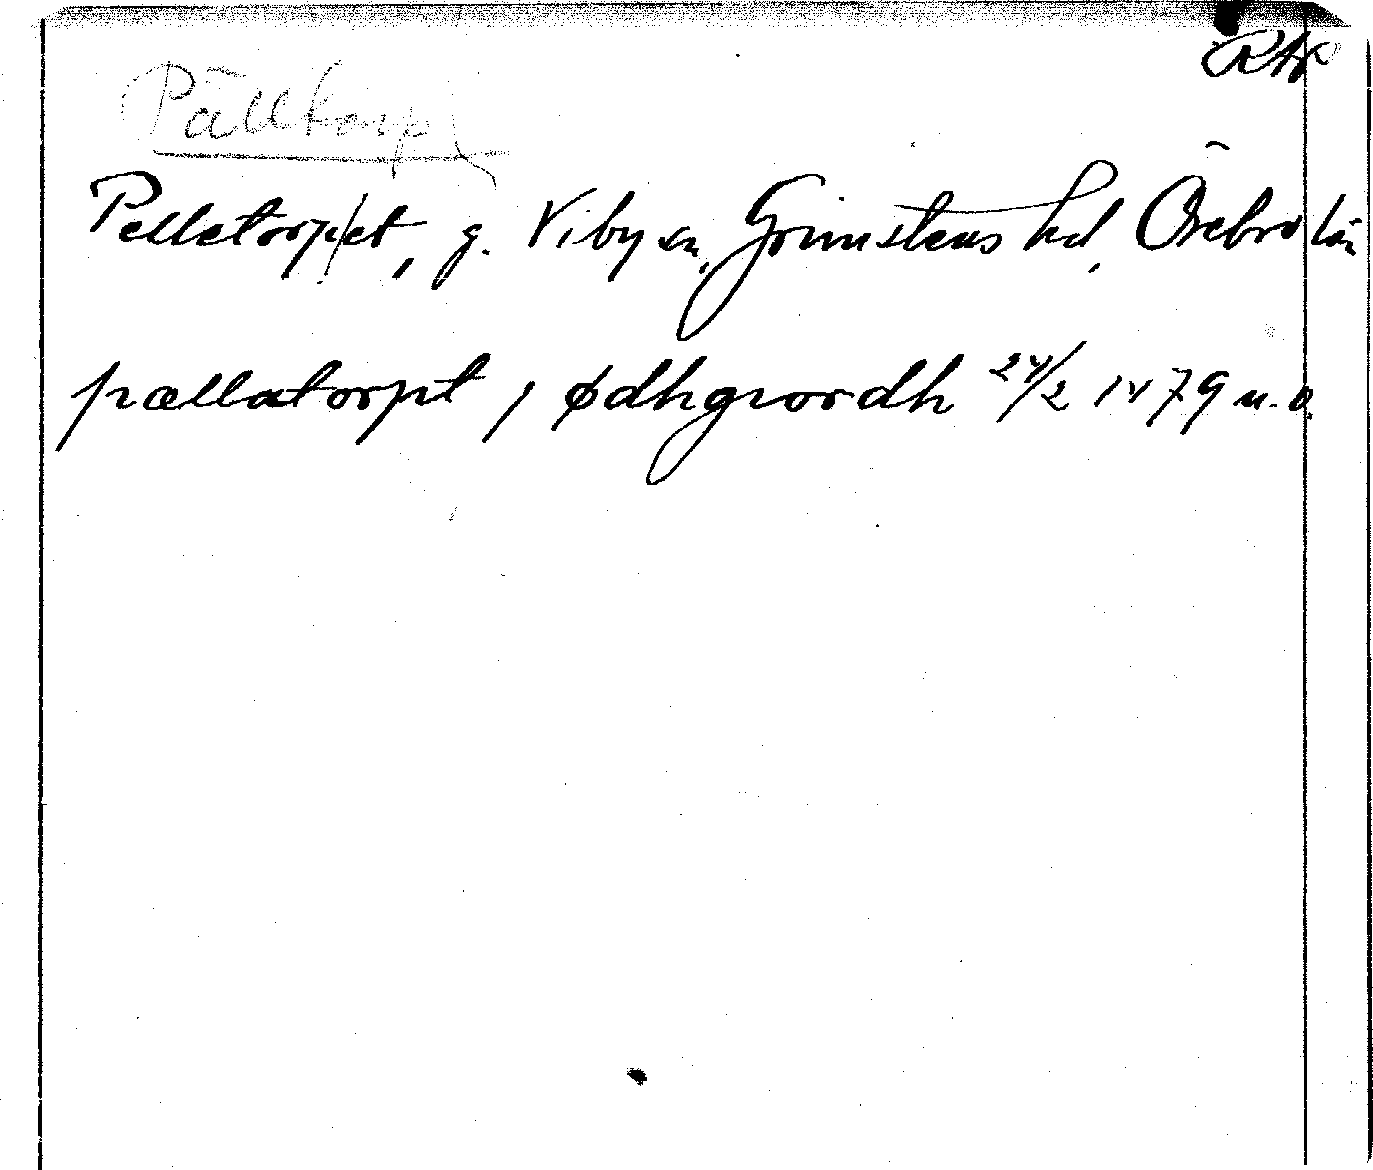 RAp
Pälltorp
Pelletorpet, g. Viby sn, Grimstens hd, Örebro län
pællatorpt, ødhgiordh 24/2 1479 u. o.